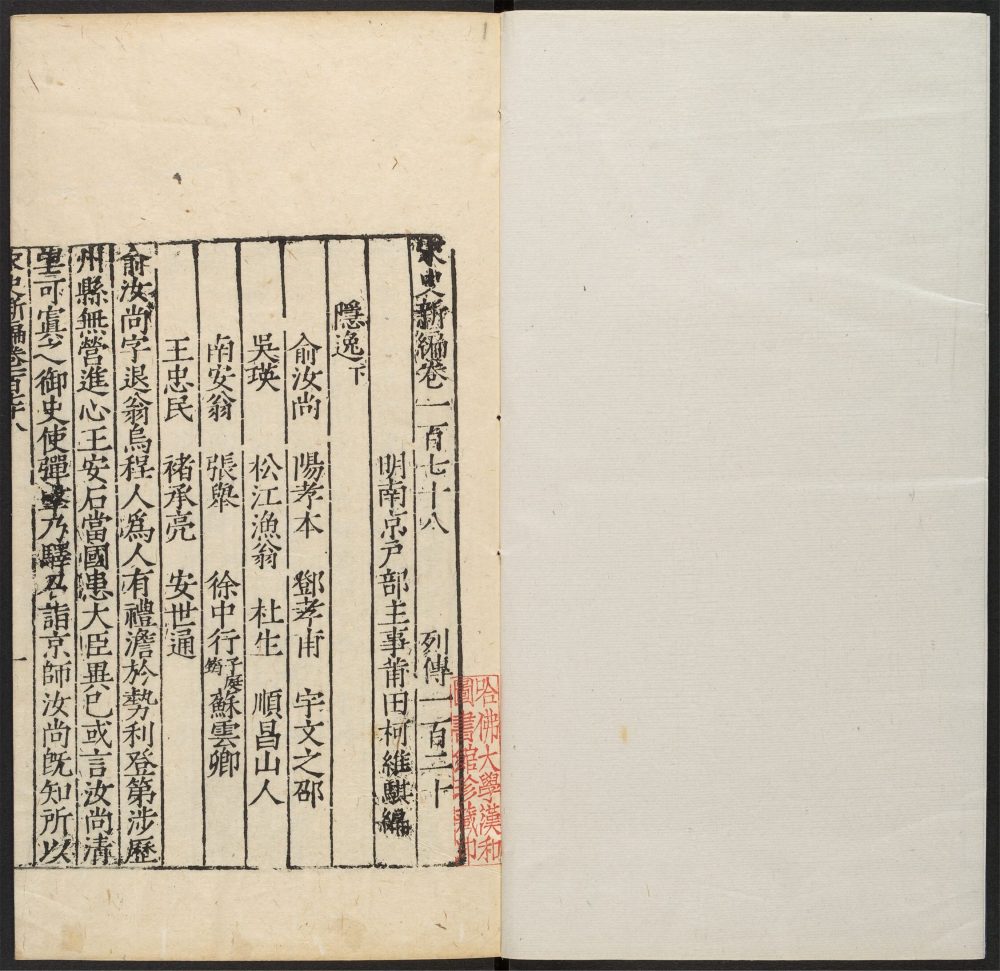 宋史新編卷一百七十八 列傳一百二十
明南京戸部主事莆田柯維騏編
隱逸下
俞汝尚 陽孝本 鄧孝甫 宇文之邵
吳瑛 松江漁翁 杜生 順昌山人
南安翁 張舉 徐中行子庭筠 蘇雲卿
王忠民 褚承亮 安世通
俞汝尚字退翁烏程人爲人有禮澹於勢利登第涉歷
州縣無營進心王安石當國患大臣異已或言汝尚清
望可寘之御史使彈擊乃驛召詣京師汝尚既知所以
宋史新編卷一百七十八 一
哈佛大學漢和
圖書館珍藏印